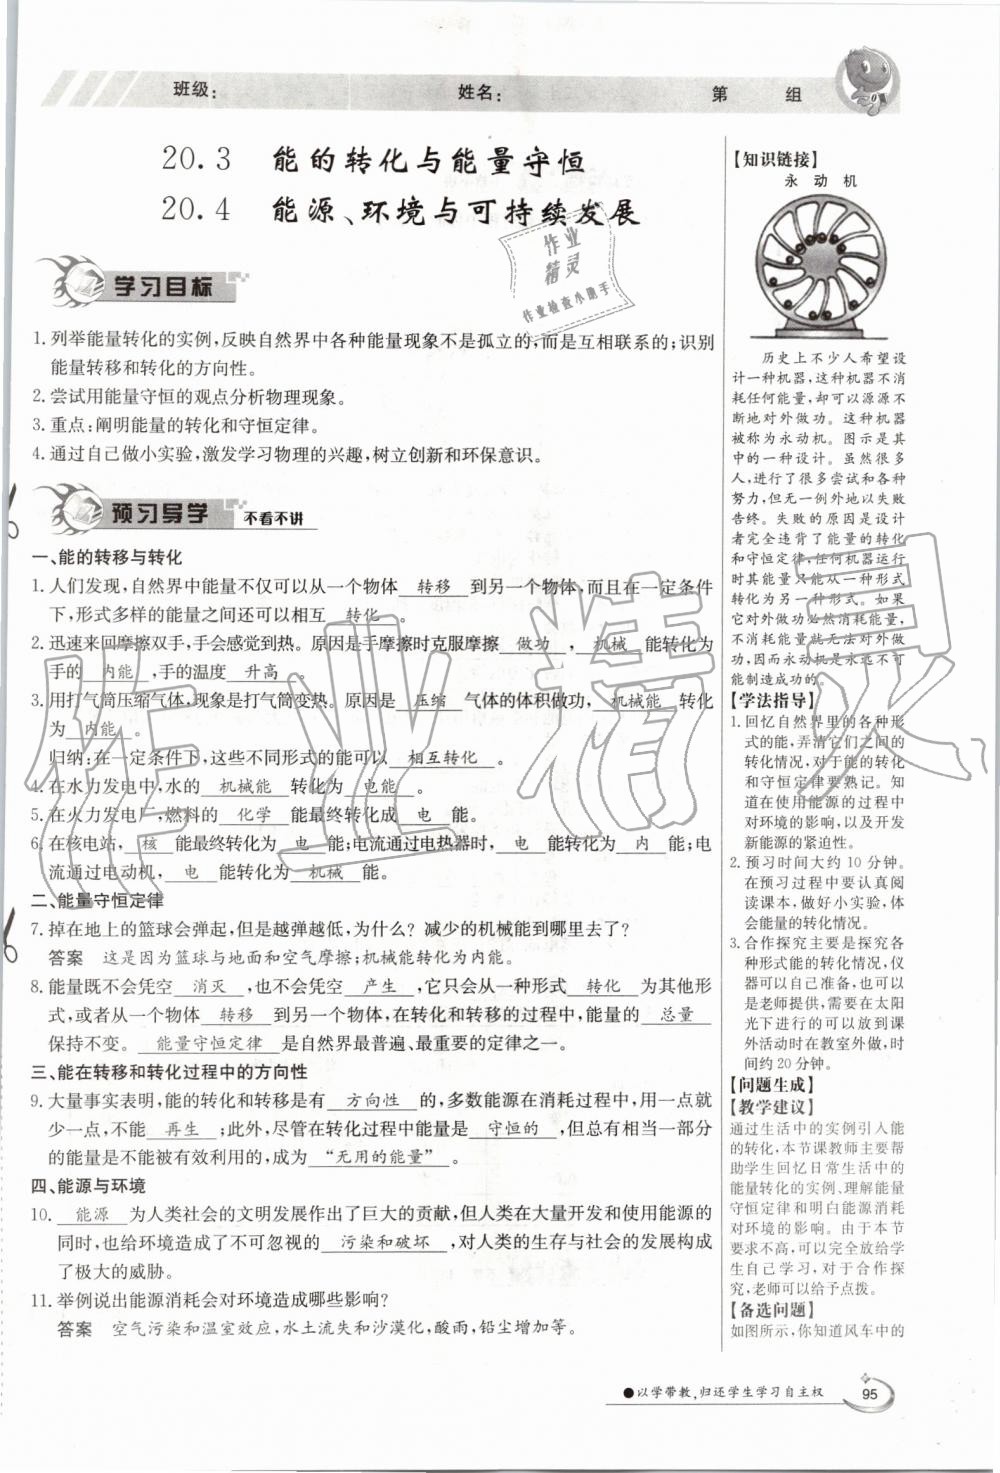 班级: 姓名: 第 组
20.3 能的转化与能量守恒
20.4 能源、环境与可持续发展
学习目标
1. 列举能量转化的实例,反映自然界中各种能量现象不是孤立的,而是互相联系的;识别
能量转移和转化的方向性。
2. 尝试用能量守恒的观点分析物理现象。
3. 重点:阐明能量的转化和守恒定律。
4. 通过自己做小实验,激发学习物理的兴趣,树立创新和环保意识。
预习导学 不看不讲
一、能的转移与转化
1. 人们发现,自然界中能量不仅可以从一个物体 转移 到另一个物体,而且在一定条件
下,形式多样的能量之间还可以相互 转化 。
2. 迅速来回摩擦双手,手会感觉到热。原因是手摩擦时克服摩擦 做功 , 机械 能转化为
手的 内能 ,手的温度 升高 。
3. 用打气筒压缩气体,现象是打气筒变热。原因是 压缩 气体的体积做功, 机械能 转化
为 内能 。
归纳:在一定条件下,这些不同形式的能可以 相互转化 。
4. 在水力发电中,水的 机械能 转化为 电能 。
5. 在火力发电厂,燃料的 化学 能最终转化成 电 能。
6. 在核电站, 核 能最终转化为 电 能;电流通过电热器时, 电 能转化为 内 能;电
流通过电动机, 电 能转化为 机械 能。
二、能量守恒定律
7. 掉在地上的篮球会弹起,但是越弹越低,为什么? 减少的机械能到哪里去了?
答案 这是因为篮球与地面和空气摩擦;机械能转化为内能。
8. 能量既不会凭空 消灭 ,也不会凭空 产生 ,它只会从一种形式 转化 为其他形
式,或者从一个物体 转移 到另一个物体,在转化和转移的过程中,能量的 总量
保持不变。 能量守恒定律 是自然界最普遍、最重要的定律之一。
三、能在转移和转化过程中的方向性
9. 大量事实表明,能的转化和转移是有 方向性 的,多数能源在消耗过程中,用一点就
少一点,不能 再生 ;此外,尽管在转化过程中能量是 守恒的 ,但总有相当一部分
的能量是不能被有效利用的,成为 “无用的能量” 。
四、能源与环境
10. 能源 为人类社会的文明发展作出了巨大的贡献,但人类在大量开发和使用能源的
同时,也给环境造成了不可忽视的 污染和破坏 ,对人类的生存与社会的发展构成
了极大的威胁。
11. 举例说出能源消耗会对环境造成哪些影响?
答案 空气污染和温室效应,水土流失和沙漠化,酸雨,铅尘增加等。
【知识链接】
永 动 机
历史上不少人希望设
计一种机器,这种机器不消
耗任何能量,却可以源源不
断地对外做功。这种机器
被称为永动机。图示是其
中的一种设计。虽然很多
人进行了很多尝试和各种
努力,但无一例外地以失败
告终。失败的原因是设计
者完全违背了能量的转化
和守恒定律,任何机器运行
时其能量只能从一种形式
转化为另一种形式。如果
它对外做功必然消耗能量,
不消耗能量就无法对外做
功,因而永动机是永远不可
能制造成功的。
【学法指导】
1. 回忆自然界里的各种形
式的能,弄清它们之间的
转化情况,对于能的转化
和守恒定律要熟记。知
道在使用能源的过程中
对环境的影响,以及开发
新能源的紧迫性。
2. 预习时间大约10分钟。
在预习过程中要认真阅
读课本,做好小实验,体
会能量的转化情况。
3. 合作探究主要是探究各
种形式能的转化情况,仪
器可以自己准备,也可以
是老师提供,需要在太阳
光下进行的可以放到课
外活动时在教室外做,时
间约20分钟。
【问题生成】
【教学建议】
通过生活中的实例引人能
的转化,本节课教师主要帮
助学生回忆日常生活中的
能量转化的实例、理解能量
守恒定律和明白能量消耗
对环境的影响。由于本节
要求不高,可以完全放给学
生自己学习,对于合作探
究,老师可以给予点拨。
【备选问题】
如图所示,你知道风车中的
●以学带教,归还学生学习自主权
95
作业精灵
作业
精灵
作业检查小助手